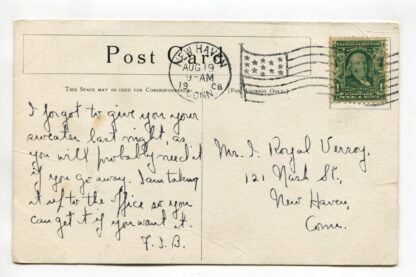 Post Card
NEW HAVEN
AUG 19
9-AM
CONN.
THIS SPACE MAY BE USED FOR CORRESPONDENCE
I forgot to give you your
sweater last night, as
you will probably need it
if you go away. I am taking
it up to the office so you
can get it if you want it.
F. J. B.
Mr. I. Royal
121 Nash St.,
New Haven,
Conn.